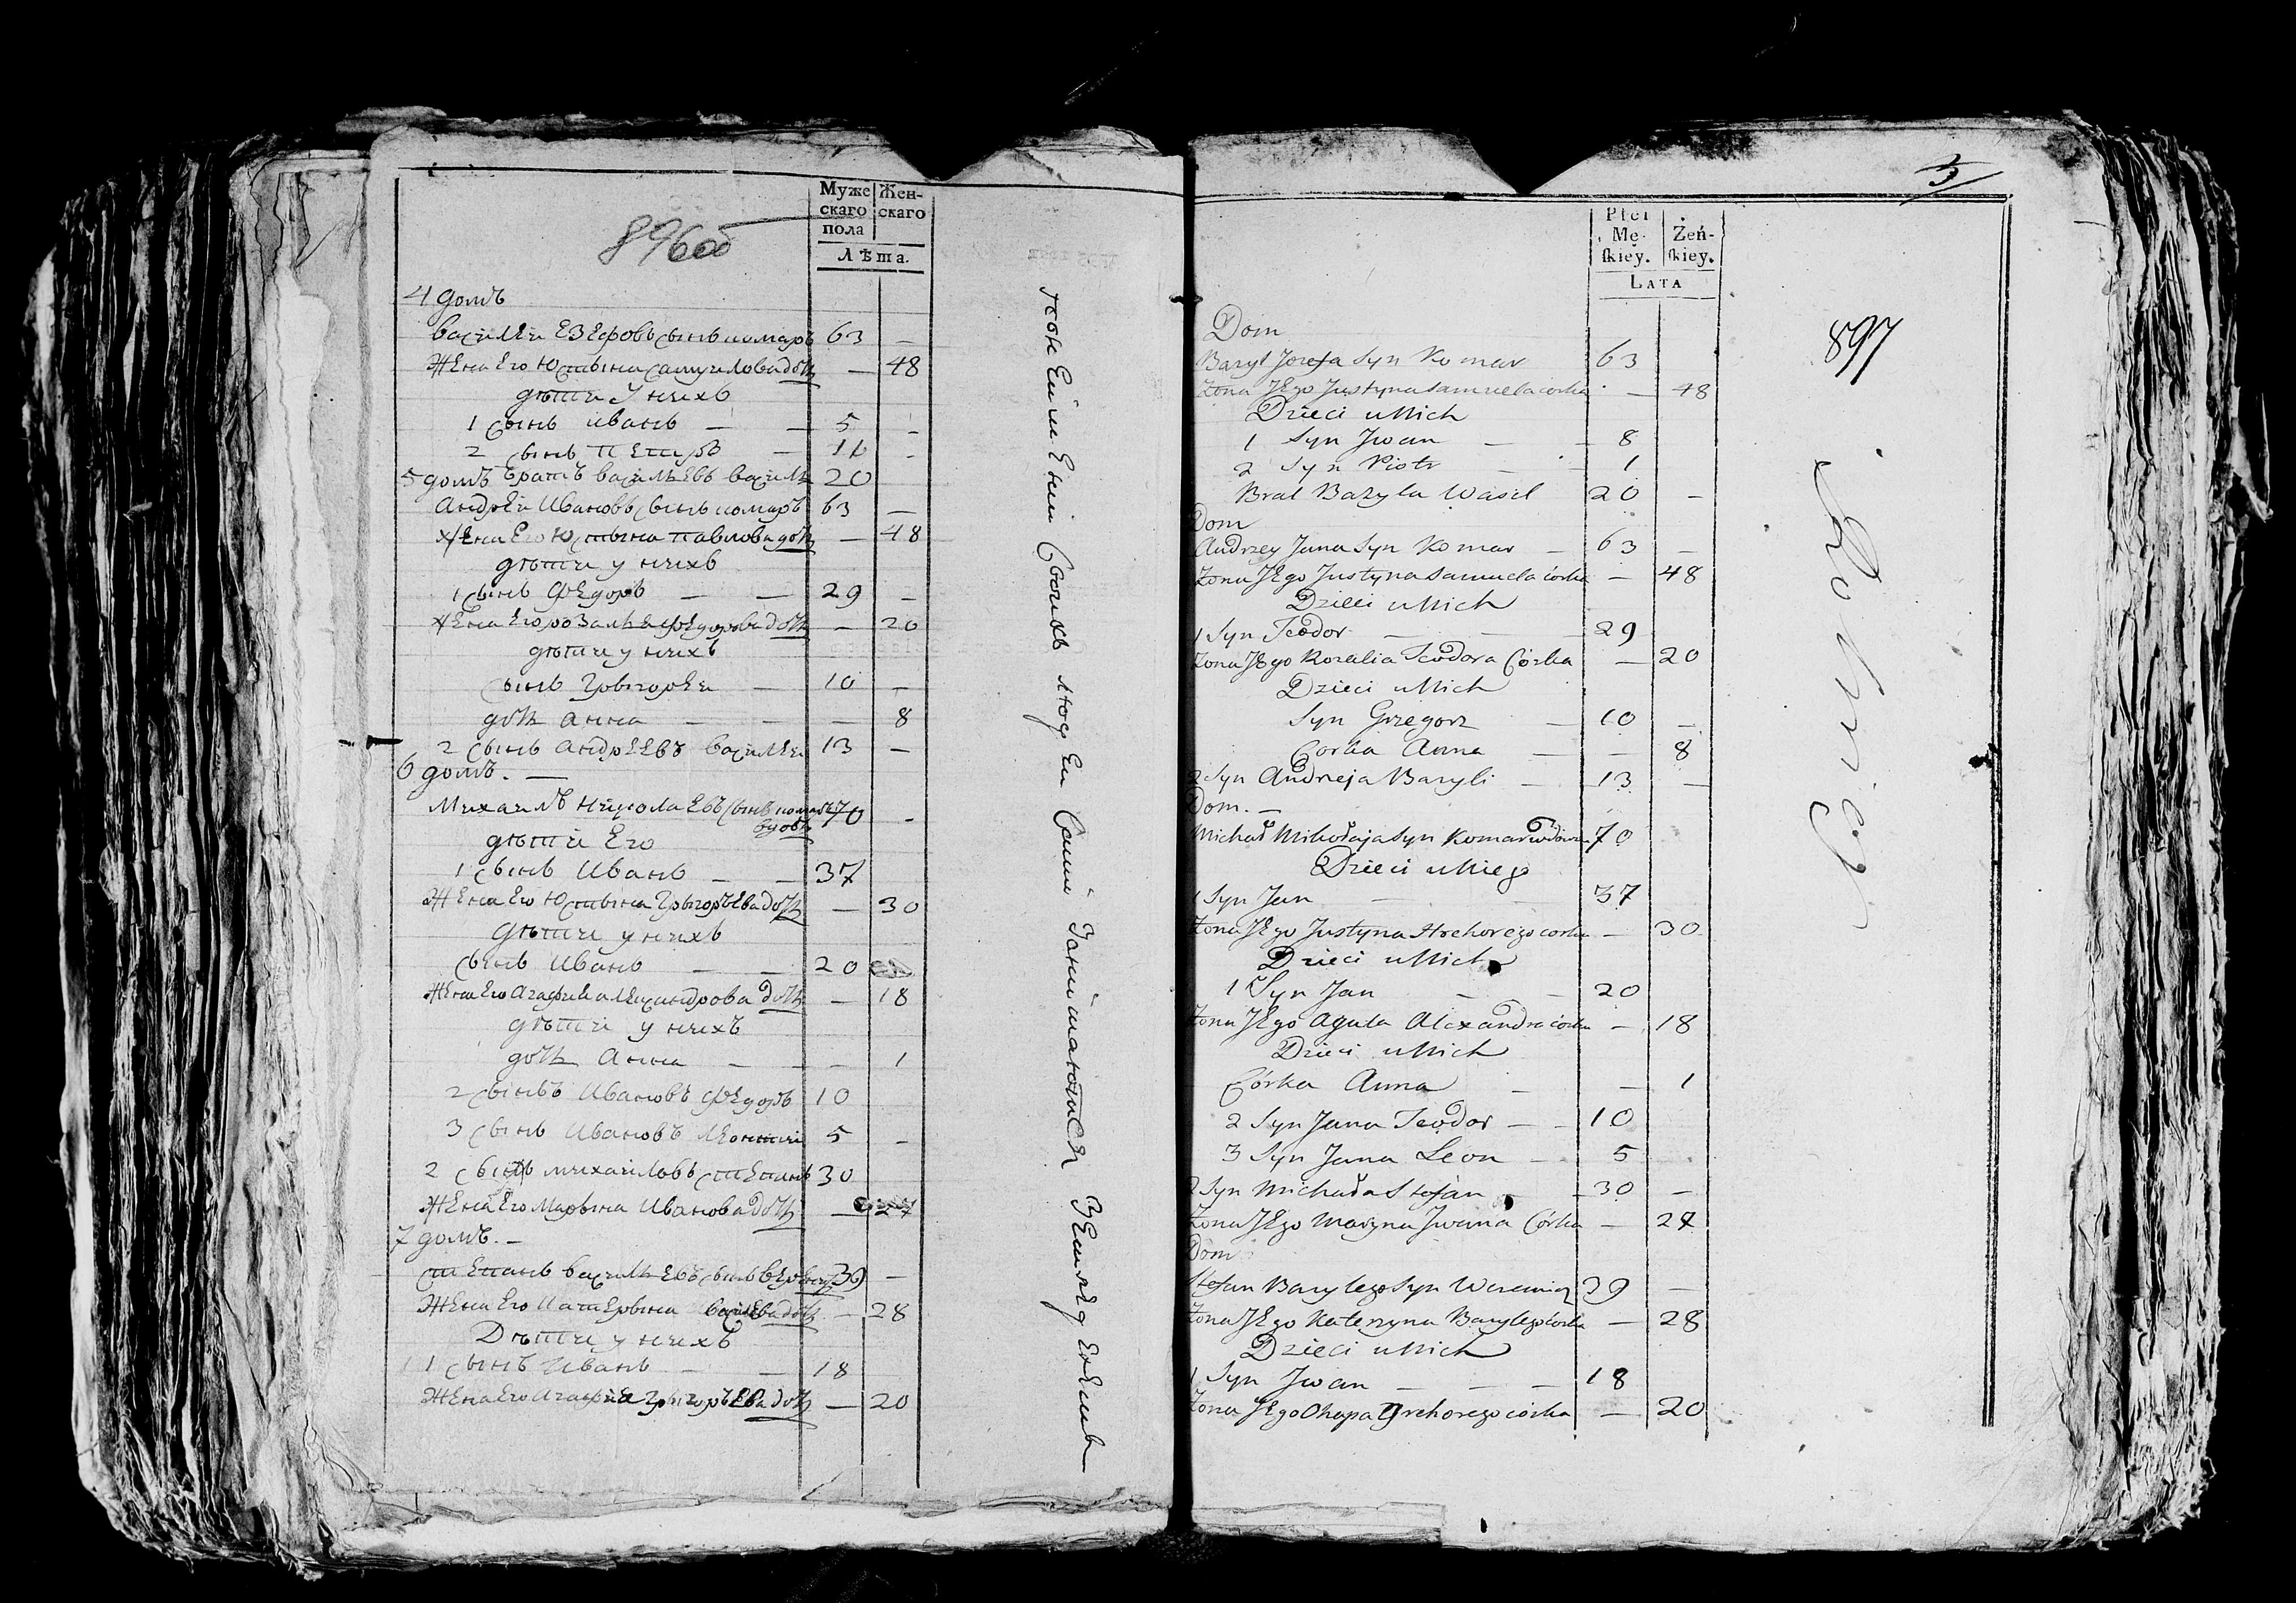 896об
Муже
скаго
пола
Жен-
скаго
Лѣта.
4 домъ
василеи Езефовъ сынъ комаръ 63 –
Жена Его Юстына самуилова дочь – 48
дѣти У нихъ
1 сынъ иванъ – – 5 –
2 сынъ Петръ – 1 –
5 домъ братъ васильевъ василь 20
Андреи Ивановъ сынъ комаръ 63 –
жена Его Юстына павлова дочь – 48
дѣти у нихъ
1 сынъ Федоръ – – 29 –
жена Его розалья федорова дочь – 20
дѣти у нихъ
сынъ Грыгореи – 10 –
дочь анна – – – 8
2 сынъ андреевъ василеи 13 –
6 домъ. –
Михаилъ Николаевъ сынъ комаръ 70 -
вдовъ
дѣти Его
1 сынъ Иванъ – – 37
Жена Его Юстына Грыгорьева дочь – 30
дѣти у нихъ
сынъ Иванъ – – 20
Жена Его агафия александрова дочь – 18
дѣти у нихъ
дочь анна – – – 1
2 сынъ Ивановъ федоръ 10
3 сынъ Ивановъ леонтии 5 –
2 сынъ михаиловъ степанъ 30
Жена Его Марына Иванова дочь – 27
7 домъ. –
степанъ васильевъ сынъ 39 –
Жена Его Катерына дочь – 28
Дѣти у нихъ
1 сынъ Иванъ – – 18
Жена Его Агафия Грыгорьева дочь – 20
своихъ людеи сами Занимаются
3
897
Płci
Mę-
skiey.
Żeń-
skiey.
LATA
Dom
Bazyl Jozefa Syn Komar 63
Zona JEgo Justyna Samuela corka – 48
Dzieci u Nich
1 Syn Jwan – – 8
2 Syn Piotr – – 1
Brat Bazyla Wasil 20 –
Dom
Andrzey Jana Syn Komar – 63 –
Zona JEgo Justyna Samuela córka – 48
Dzieci u Nich
1 Syn Teodor – – 29
Zona JEgo Rozalia Teodora Córka – 20
Dzieci u Nich
Syn Grzegorz – 10 –
Corka Anna – – 8
2 Syn Andrzeja Bazyli – 13 –
Dom. –
Michał Mikołaja Syn Komar wdowiec 70
Dzieci u Niego
1 Syn Jan – 37
Zona JEgo Justyna Hrehorego corka – 30
Dzieci u Nich
1 Syn Jan – – 20
Zona JEgo Agata Alexandra córka – 18
Dzieci u Nich
Córka Anna – – 1
2 Syn Jana Teodor – – 10
3 Syn Jana Leon – 5
2 Syn Michała Stefan – 30 –
Zona JEgo Maryna Jwana Córka – 27
Dom
Stefan Bazylego Syn 39 –
Zona JEgo Katerzyna Bazylego córka – 28
Dzieci u Nich
1 Syn Jwan – – – 18
Zona JEgo Ohapa Grehorego córka – 20